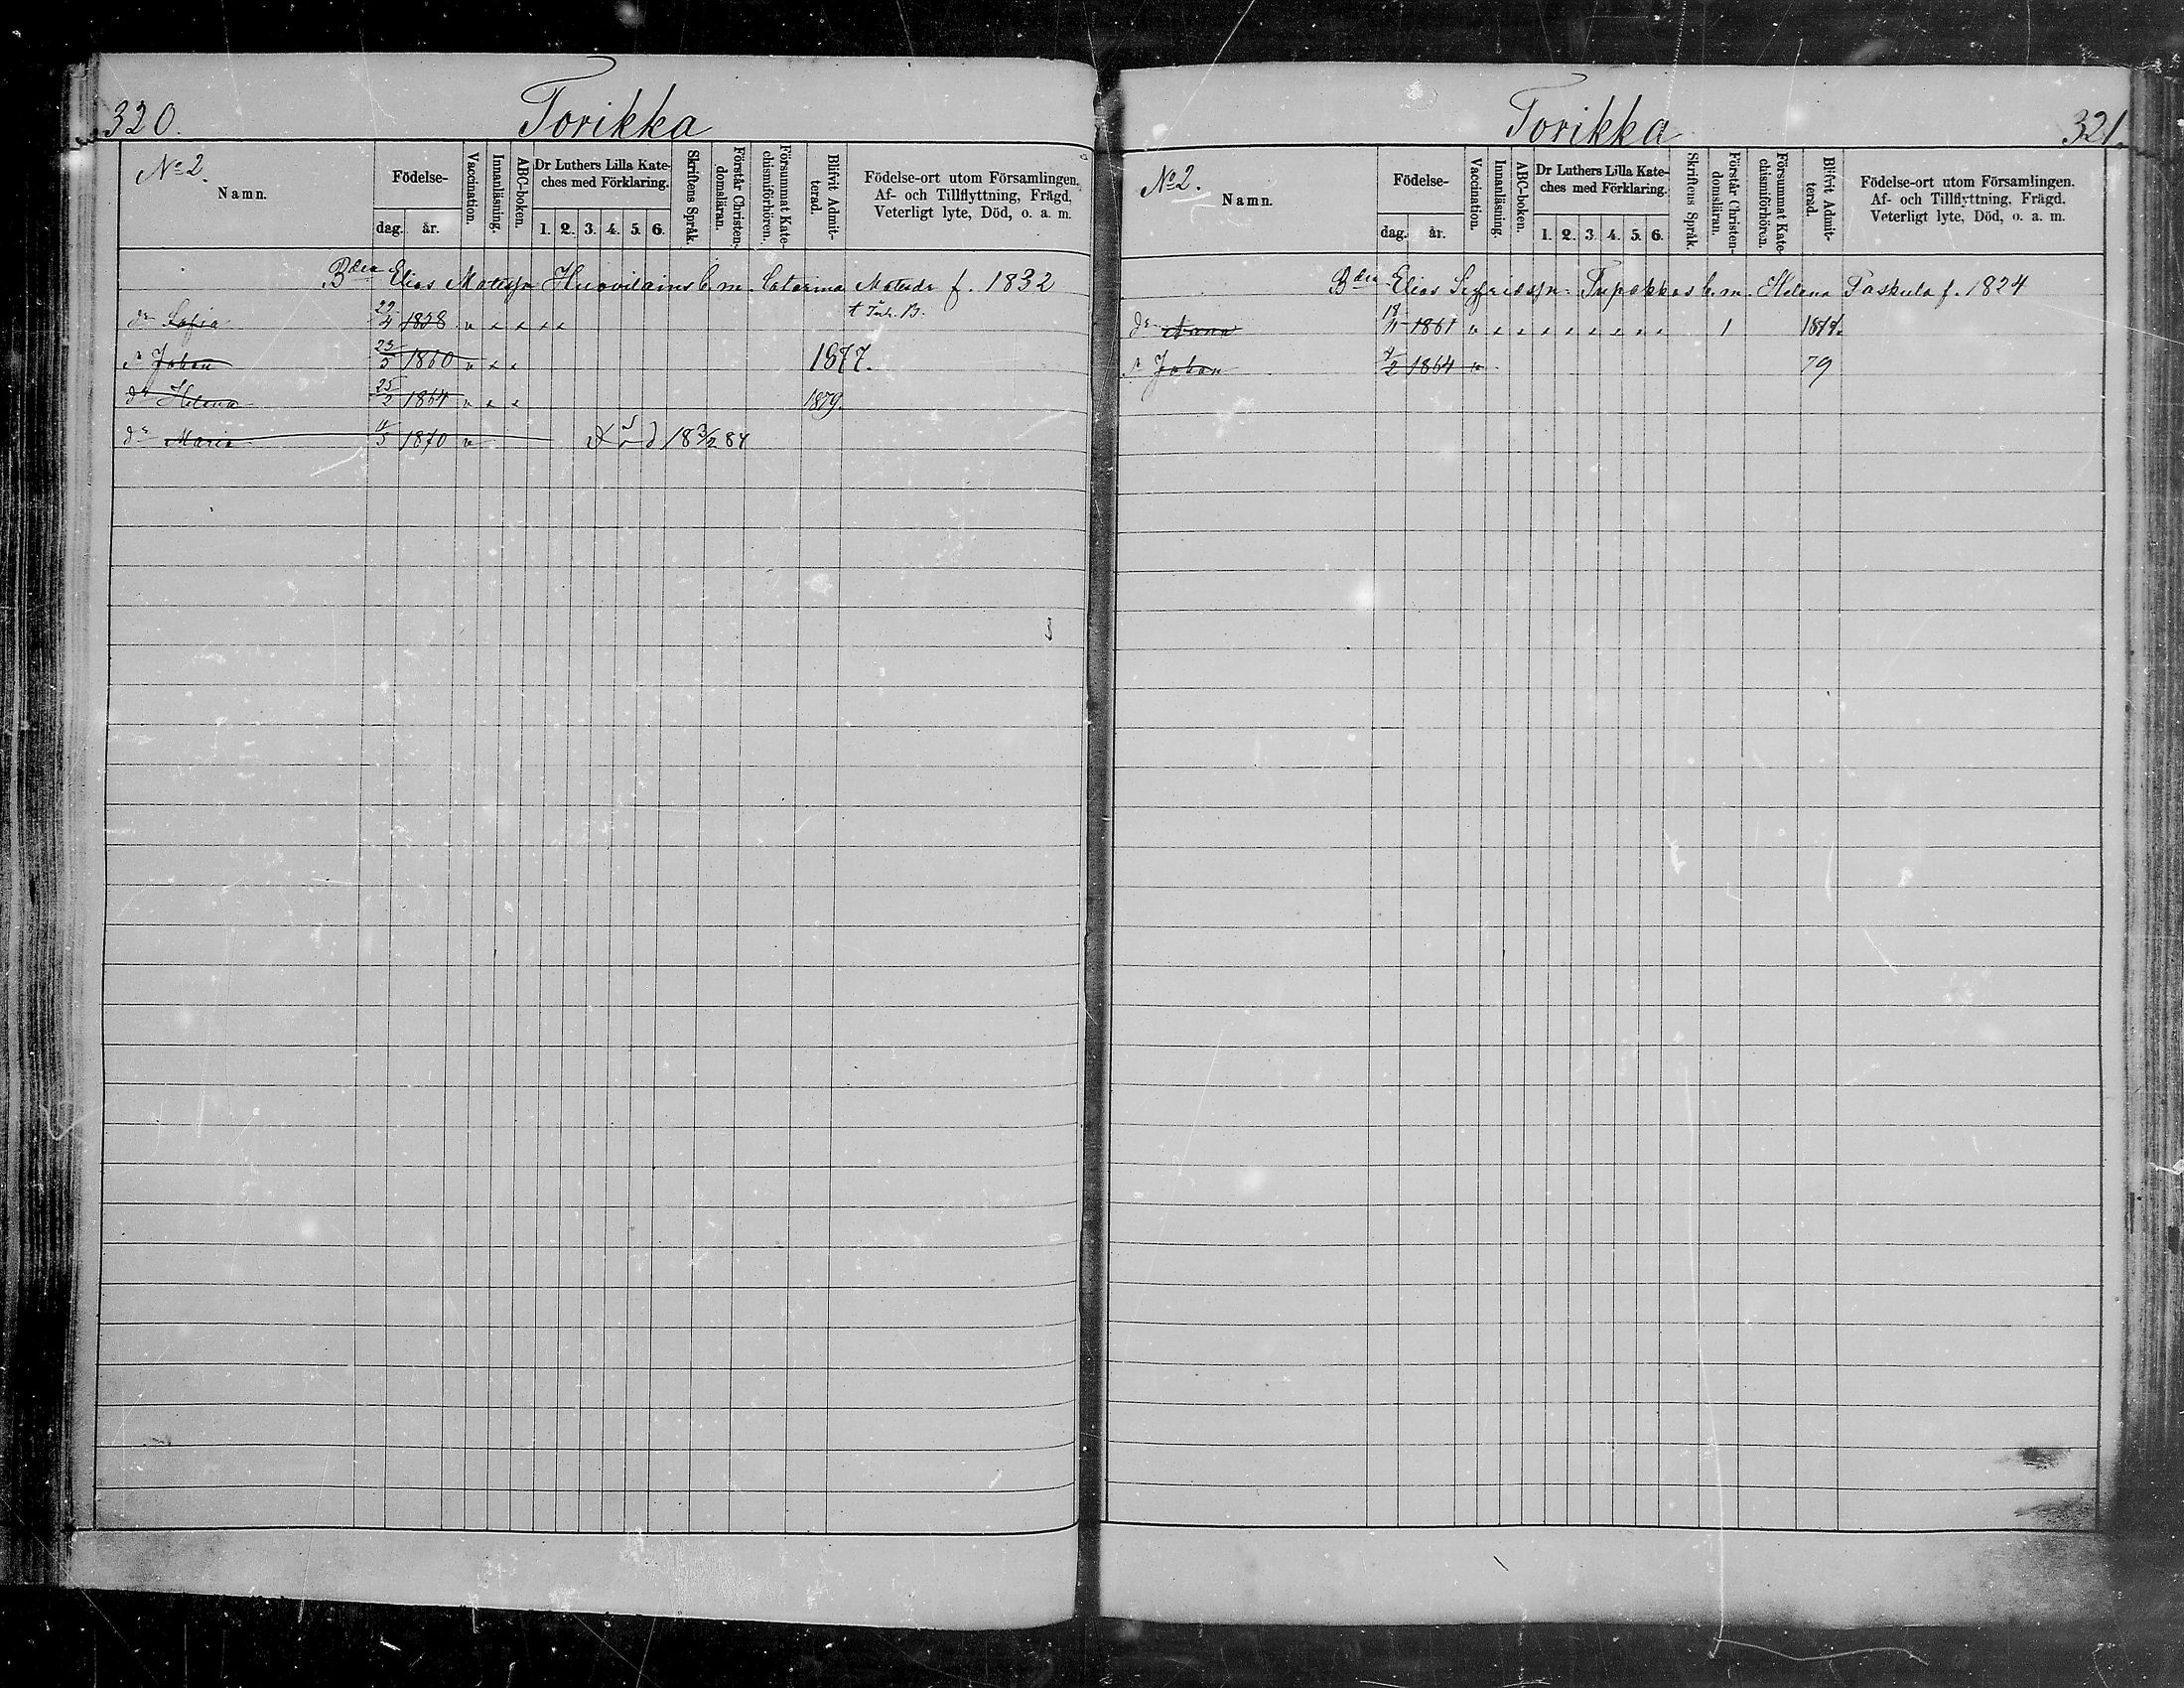 320.
Torikka
No 2.
Namn.
Födelse-
dag. år.
Vaccination.
Innanläsning.
ABC-boken.
Dr Luthers Lilla Kate-
ches med Förklaring.
1. 2. 3. 4. 5. 6.
Skriftens Språk.
Förstår Christen-
domsläran.
Försummat Kate-
chismiförhören.
Blifvit Admit-
terad.
Födelse-ort utom Församlingen.
Af- och Tillflyttning, Frägd,
Veterligt lyte, Död, o. a. m.
Bden Elias Matsson Huovilains b. m. Catarina Matsdr f. 1832
dr Sofia 29/4 1858 v x x x x t Inh. B.
s Johan 23/5 1860 v x x 1877.
dr Helena 25/5 1864 v x x 1879.
dr Maria 4/5 1870 v Död 18 3/2 84
Torikka
321.
No 2.
Namn.
Födelse-
dag. år.
Vaccination.
Innanläsning.
ABC-boken.
Dr Luthers Lilla Kate-
ches med Förklaring.
1. 2. 3. 4. 5. 6.
Skriftens Språk.
Förstår Christen-
domsläran.
Försummat Kate-
chismiförhören.
Blifvit Admit-
terad.
Födelse-ort utom Församlingen.
Af- och Tillflyttning, Frägd,
Veterligt lyte, Död, o. a. m.
Bden Elias Sigfridssn Tupakkas b. m. Helena Taskula f. 1824
dr Anna 18/11 1861 v x x x x x x x x 1 1877.
s Johan 4/2 1864 v 79